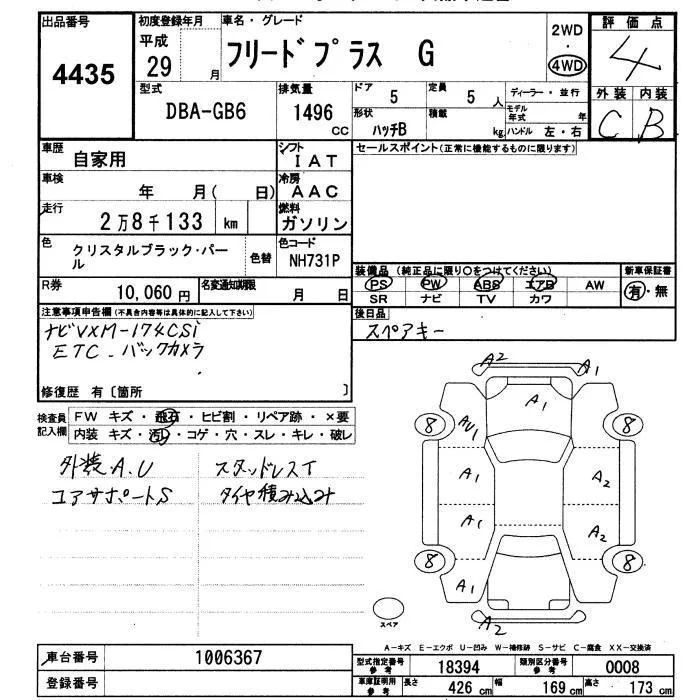 出品番号
4435
初度登録年月
平成
29 月
車名・グレード
フリードプラス G
2WD
・
4WD
評価点
4
外装 内装
C B
型式
DBA-GB6
排気量
1496
CC
ドア
5
定員
5 人
形状
ハッチB
積載
kg
ディーラー・並行
モデル年式 年
ハンドル 左・右
車歴
自家用
シフト
IAT
車検
年 月( 日)
冷房
AAC
走行
2万8千133 km
燃料
ガソリン
色
クリスタルブラック・パール
色替
色コード
NH731P
R券
10,060円
名変通知期限
月 日
セールスポイント(正常に機能するものに限ります)
装備品 (純正品に限り○をつけてください)
PS PW ABS エアB AW
SR ナビ TV カワ
新車保証書
有・無
後日品
スペアキー
注意事項申告欄(不具合内容等は具体的に記入して下さい)
ナビVXM-174CSi
ETC. バックカメラ
修復歴 有〔箇所 〕
検査員記入欄
FW キズ・飛石・ヒビ割・リペア跡・×要
内装 キズ・汚れ・コゲ・穴・スレ・キレ・破レ
外装.A.U
コアサポートS
スタッドレスT
タイヤ積み込み
A2 A1
A1
8 AU1 8
A1 A2
A1 A2
8 8
A1
A2
スペア
A-キズ E-エクボ U-凹み W-補修跡 S-サビ C-腐食 XX-交換済
車台番号
1006367
登録番号
型式指定番号
参考
18394
類別区分番号
参考
0008
車庫証明用
参考
長さ 426 cm 幅 169 cm 高さ 173 cm